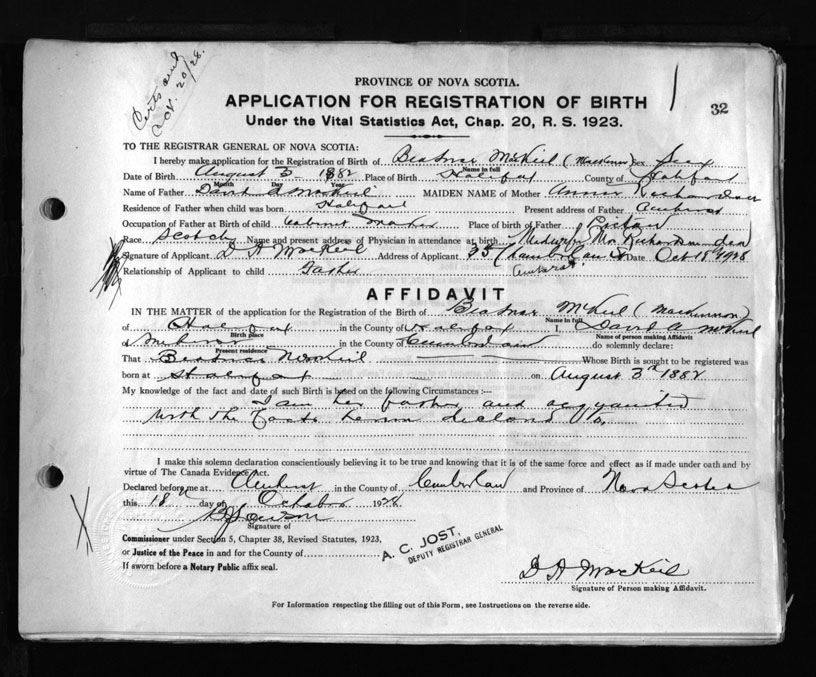 Nov. 20/28.
PROVINCE OF NOVA SCOTIA.
APPLICATION FOR REGISTRATION OF BIRTH
Under the Vital Statistics Act, Chap. 20, R. S. 1923.
32
TO THE REGISTRAR GENERAL OF NOVA SCOTIA:
I hereby make application for the Registration of Birth of Beatrice McKiel ( Sex
Name in full
Date of Birth August 3 1882 Place of Birth Halifax County of Halifax
Month Day Year
Name of Father David A MacKeil MAIDEN NAME of Mother Annie Richardson
Residence of Father when child was born Halifax Present address of Father Amherst
Occupation of Father at Birth of child Cabinet Maker Place of birth of Father Pictou
Race Scotch Name and present address of Physician in attendance at birth Midwife Mrs Richardson dead
Signature of Applicant D A MacKeil Address of Applicant 35 Date Oct 18th 1928
Amherst
Relationship of Applicant to child Father
AFFIDAVIT
IN THE MATTER of the application for the Registration of the Birth of Beatrice McKiel (MacKinnon)
Name in full
of Halifax in the County of Halifax I, David A McKiel
Birth place Name of person making Affidavit
of Amherst in the County of Cumberland do solemnly declare:
Present residence
That Beatrice McKiel Whose Birth is sought to be registered was
born at Halifax on August 3rd 1882
My knowledge of the fact and date of such Birth is based on the following Circumstances:—
I am her father and acquainted
with the facts herein declared to.
I make this solemn declaration conscientiously believing it to be true and knowing that it is of the same force and effect as if made under oath and by
virtue of The Canada Evidence Act.
Declared before me at Amherst in the County of Cumberland and Province of Nova Scotia
this 18th day of October 1928
Signature of
Commissioner under Section 5, Chapter 38, Revised Statutes, 1923,
or Justice of the Peace in and for the County of
If sworn before a Notary Public affix seal.
A. C. JOST,
DEPUTY REGISTRAR GENERAL
D A MacKeil
Signature of Person making Affidavit.
For Information respecting the filling out of this Form, see Instructions on the reverse side.